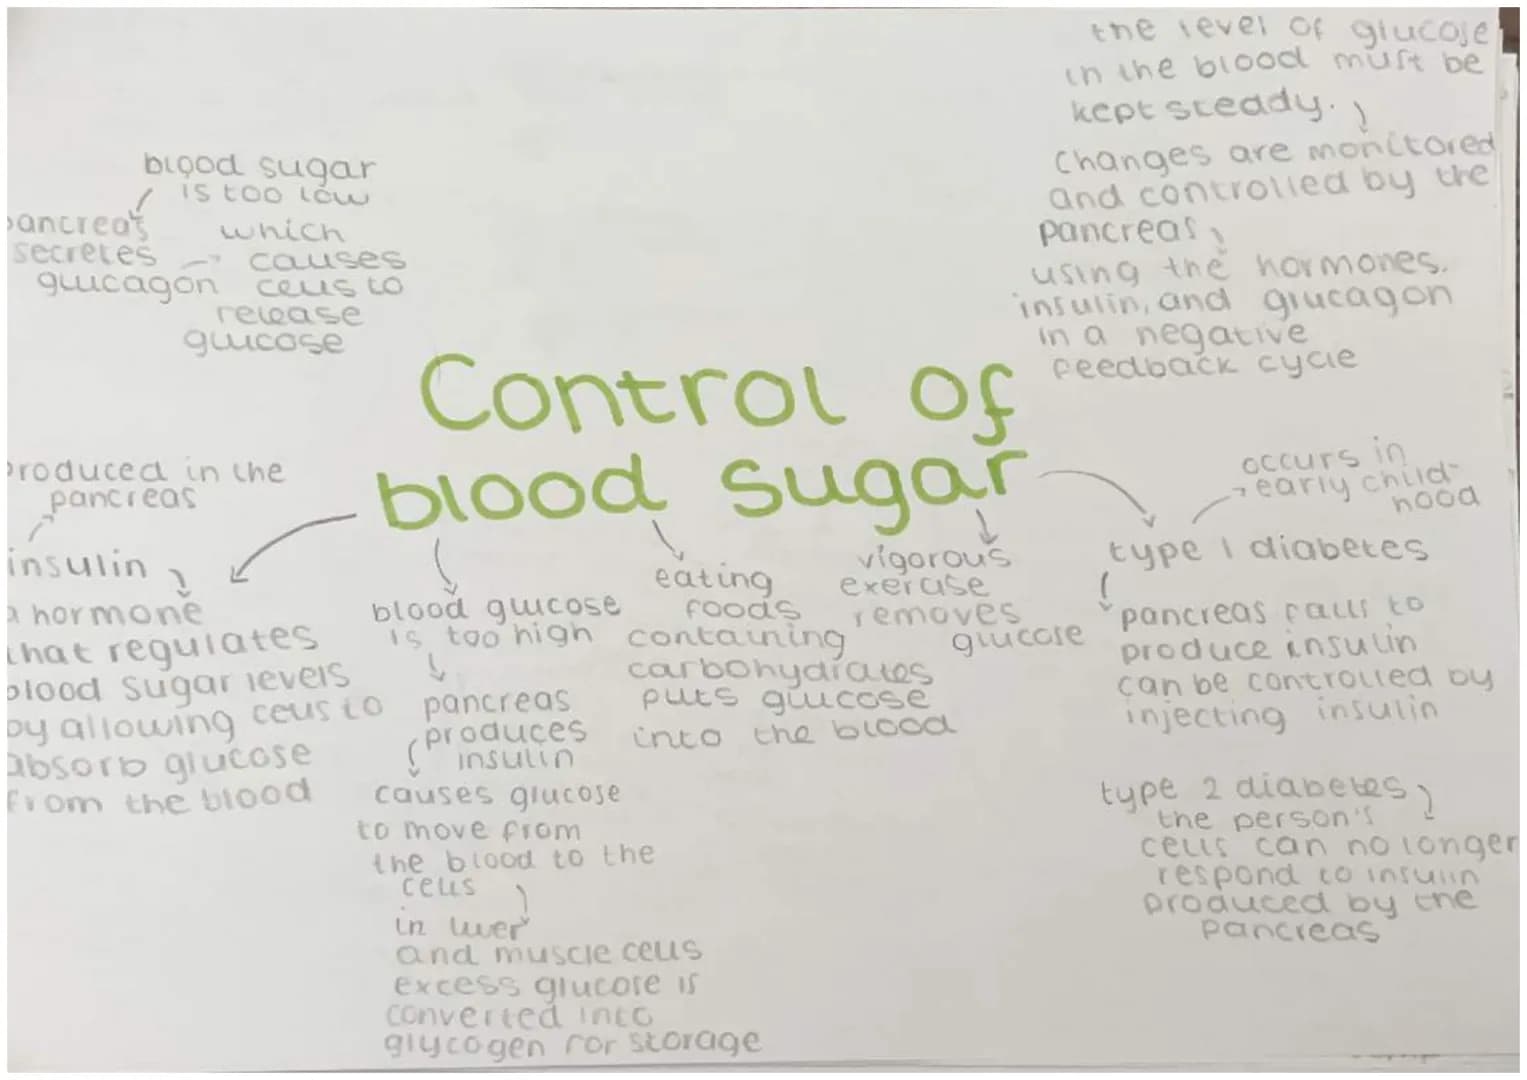 Control of
blood sugar
the level of glucose
in the blood must be
kept steady.
changes are monitored
and controlled by the
pancreas
using the hormones.
insulin, and glucagon
in a negative
feedback cycle
blood sugar
is too low
pancreas
secretes
glucagon
which
causes
cells to
release
glucose
produced in the
pancreas
insulin
a hormone
that regulates
blood sugar levels
by allowing cells to
absorb glucose
from the blood
blood glucose
is too high
pancreas
produces
insulin
causes glucose
to move from
the blood to the
cells
in liver
and muscle cells
excess glucose is
converted into
glycogen for storage
eating
foods
containing
carbohydrates
puts glucose
into the blood
vigorous
exercise
removes
glucose
occurs in
early child-
hood
type 1 diabetes
pancreas fails to
produce insulin
can be controlled by
injecting insulin
type 2 diabetes
the person's
cells can no longer
respond to insulin
produced by the
pancreas